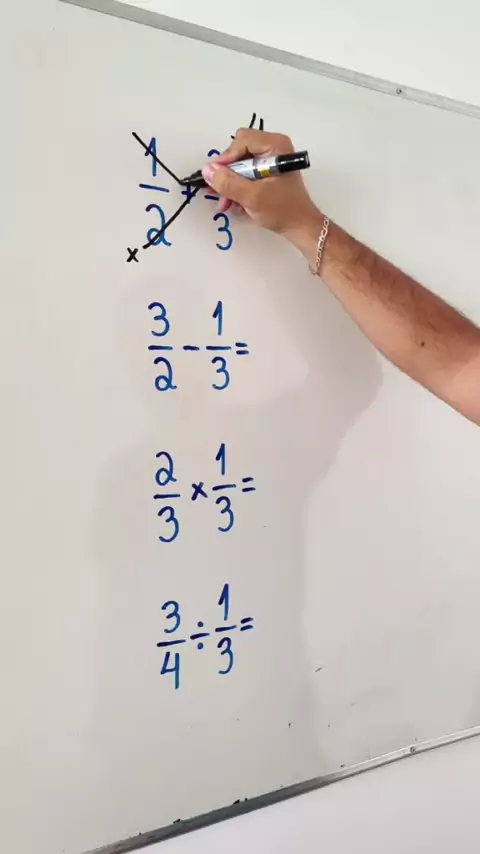 1/2 + /3
x
3/2 - 1/3 =
2/3 × 1/3 =
3/4 ÷ 1/3 =